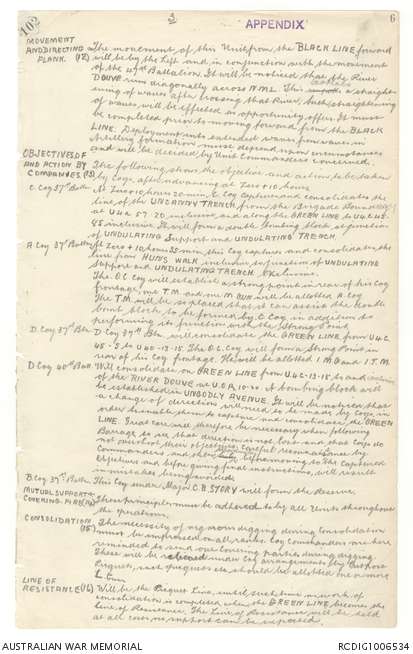 3
APPENDIX
6
102
MOVEMENT
AND DIRECTING
FLANK. (12)
The movement of this Unit from the BLACK LINE forward
will be by the Left and in conjunction with the movement
of the 47th Battalion. It will be noticed that the River
DOUVE runs diagonally across N.M.L. This a straight-
ening of waves after crossing that River. Such straightening
of waves will be effected as opportunity offers. It must
be completed prior to moving forward from the BLACK
LINE. Deployment into extended waves from waves in
Artillery formation must depend upon circumstances
and will be decided by Unit Commanders concerned.
OBJECTIVES OF
AND ACTION BY
COMPANIES (13)
The following shows the objective and action to be taken
by Coys. after advancing at Zero + 10 hours
C. Coy 37th Battn
At Zero + 10 hours 20 min. C Coy captures and consolidates the
line of the UNCANNY TRENCH from the Brigade Boundary
at U.4.c. 57.20 inclusive and along the GREEN LINE to U.4.c.45.
85 inclusive. It will form a double bombing block at junction
of UNDULATING Support and UNDULATING TRENCH.
A Coy 37th Battn
At Zero + 10 hours 35 min, this Coy captures and consolidates the
line from HUN'S WALK inclusive to junction of UNDULATING
Support and UNDULATING TRENCH exclusive.
The O.C. Coy will establish a strong point in rear of his Coy
frontage, one T.M. and one M GUN will be allotted A Coy
The T.M. will be so placed that it can assist the double
bomb block to be formed by C Coy, in addition to
performing its function with the Strong Point
D. Coy 37th Btn
D Coy 37th Btn. will consolidate the GREEN LINE from U.4.C.
45.5 to U.4.c.13.15. The O.C. Coy will form a Strong Point in
rear of his Coy frontage. He will be allotted 1 M.G and 1 T.M.
D Coy 40th Batt
Will consolidate on GREEN LINE from U.4.c.13.15 to and
of the RIVER DOUVE at U.O.A.10.20. A bombing block will
be established in UNGODLY AVENUE. It will be noticed that
a change of direction will need to be made by Coys in
order to enable them to capture and consolidate the GREEN
LINE. Great care will therefore be necessary when following
Barrage to see that direction is not lost and that Coys do
not overshoot their objectives. Careful reconnaissance by
Commanders and their of the ground to be captured
before and before giving final instructions, will result
in mistakes being avoided.
B. Coy 37th Battn.
This Coy under Major C.B. STORY will form the Reserve.
MUTUAL SUPPORT &
COVERING FIRE (14)
These principles must be adhered to by all Units throughout
the operations.
CONSOLIDATION
(15)
The necessity of vigorous digging during Consolidation
must be impressed on all ranks. Coy Commanders are here
reminded to send out covering parties during digging
These will be relieved under Coy arrangements by outpost
Picquets, such picquets etc should be allotted one or more
L. Guns
LINE OF
RESISTANCE (16)
Will be the Picquet Line, until such time as work of
consolidation is completed when the GREEN LINE becomes the
line of Resistance. The Line of Resistance will be held
at all costs, no support can be expected.
AUSTRALIAN WAR MEMORIAL
RCDIG1006534